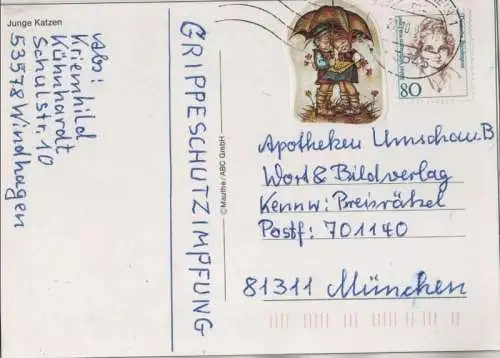 Junge Katzen
Abs:
Kriemhild
Kühnhardt
Schulstr. 10
53578 Windhagen
GRIPPESCHUTZIMPFUNG
© Mauritte / ABC GmbH
80
Apotheken Umschau B
Wort & Bildverlag
Kennw: Preisrätsel
Postf: 701140
81311 München